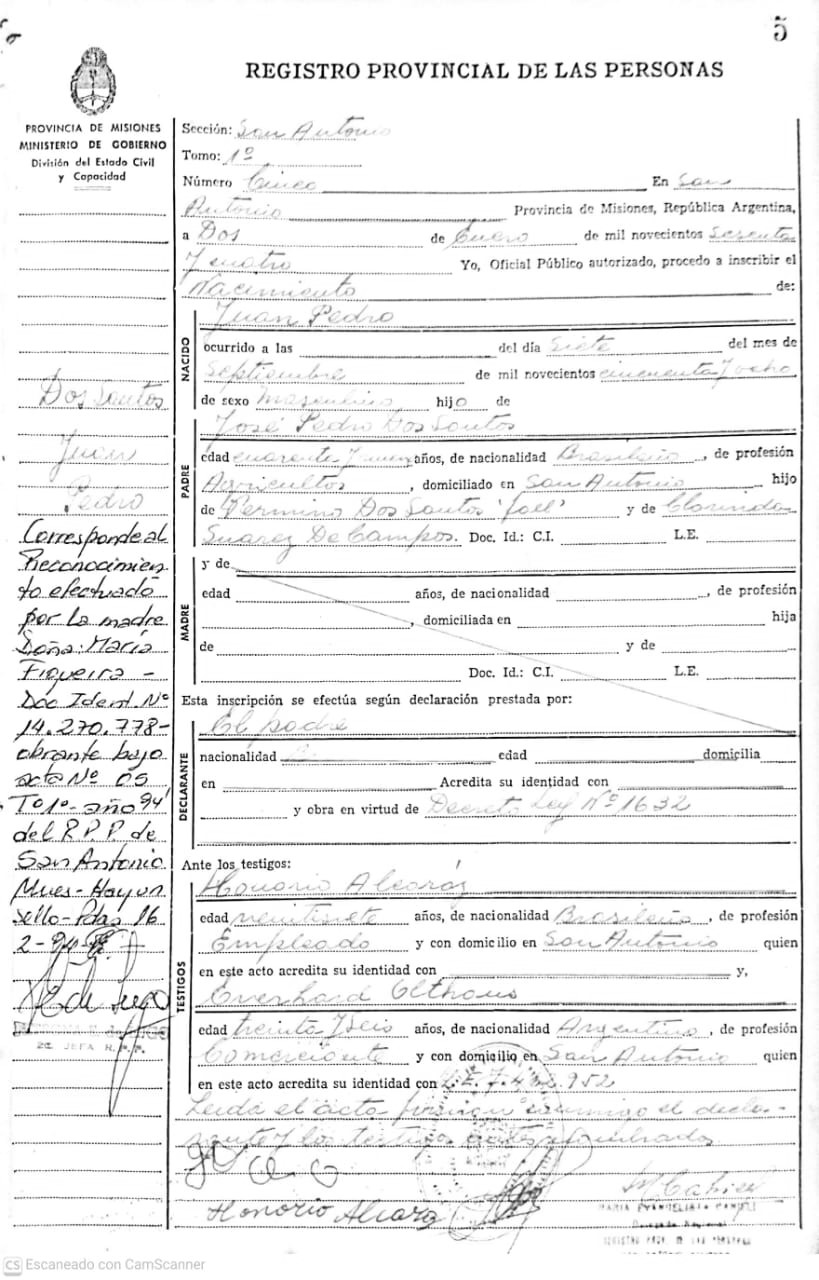 5
REGISTRO PROVINCIAL DE LAS PERSONAS
PROVINCIA DE MISIONES
MINISTERIO DE GOBIERNO
División del Estado Civil
y Capacidad
Dos Santos
Juan
Pedro
Corresponde al
Reconocimien
to efectuado
por la madre
Doña: María
Figueira -
Doc Ident. Nº
14.270.778-
obrante bajo
acta Nº 05
Tº 1º - año 94'
del R.P.P. de
San Antonio
Mnes - Hay un
sello - Pdas 16
2-94
2da JEFA R.P.P.
Sección: San Antonio
Tomo: 1º
Número Cinco En San
Antonio Provincia de Misiones, República Argentina,
a Dos de Enero de mil novecientos Sesenta
y cuatro Yo, Oficial Público autorizado, procedo a inscribir el
Nacimiento de:
NACIDO
Juan Pedro
ocurrido a las del día Siete del mes de
Septiembre de mil novecientos cincuenta y ocho
de sexo Masculino hijo de
PADRE
José Pedro Dos Santos
edad cuarenta y años, de nacionalidad Brasileño, de profesión
Agricultor, domiciliado en San Antonio hijo
de Permino Dos Santos y de Clorinda
Suarez De Campos. Doc. Id.: C.I. L.E.
MADRE
y de
edad años, de nacionalidad, de profesión
, domiciliada en hija
de y de
Doc. Id.: C.I. L.E.
Esta inscripción se efectúa según declaración prestada por:
DECLARANTE
El padre
nacionalidad edad domicilia
en Acredita su identidad con
y obra en virtud de Decreto Ley Nº 1632
Ante los testigos:
TESTIGOS
Honorio Alcaráz
edad veintisiete años, de nacionalidad Brasileño, de profesión
Empleado y con domicilio en San Antonio quien
en este acto acredita su identidad con y,
Everhard Olthous
edad treinta y seis años, de nacionalidad Argentino, de profesión
Comerciante y con domicilio en San Antonio quien
en este acto acredita su identidad con L.E. 7.4 952
Leida el acta firman conmigo el decla-
rante y los testigos
Honorio Alcaraz
CS Escaneado con CamScanner